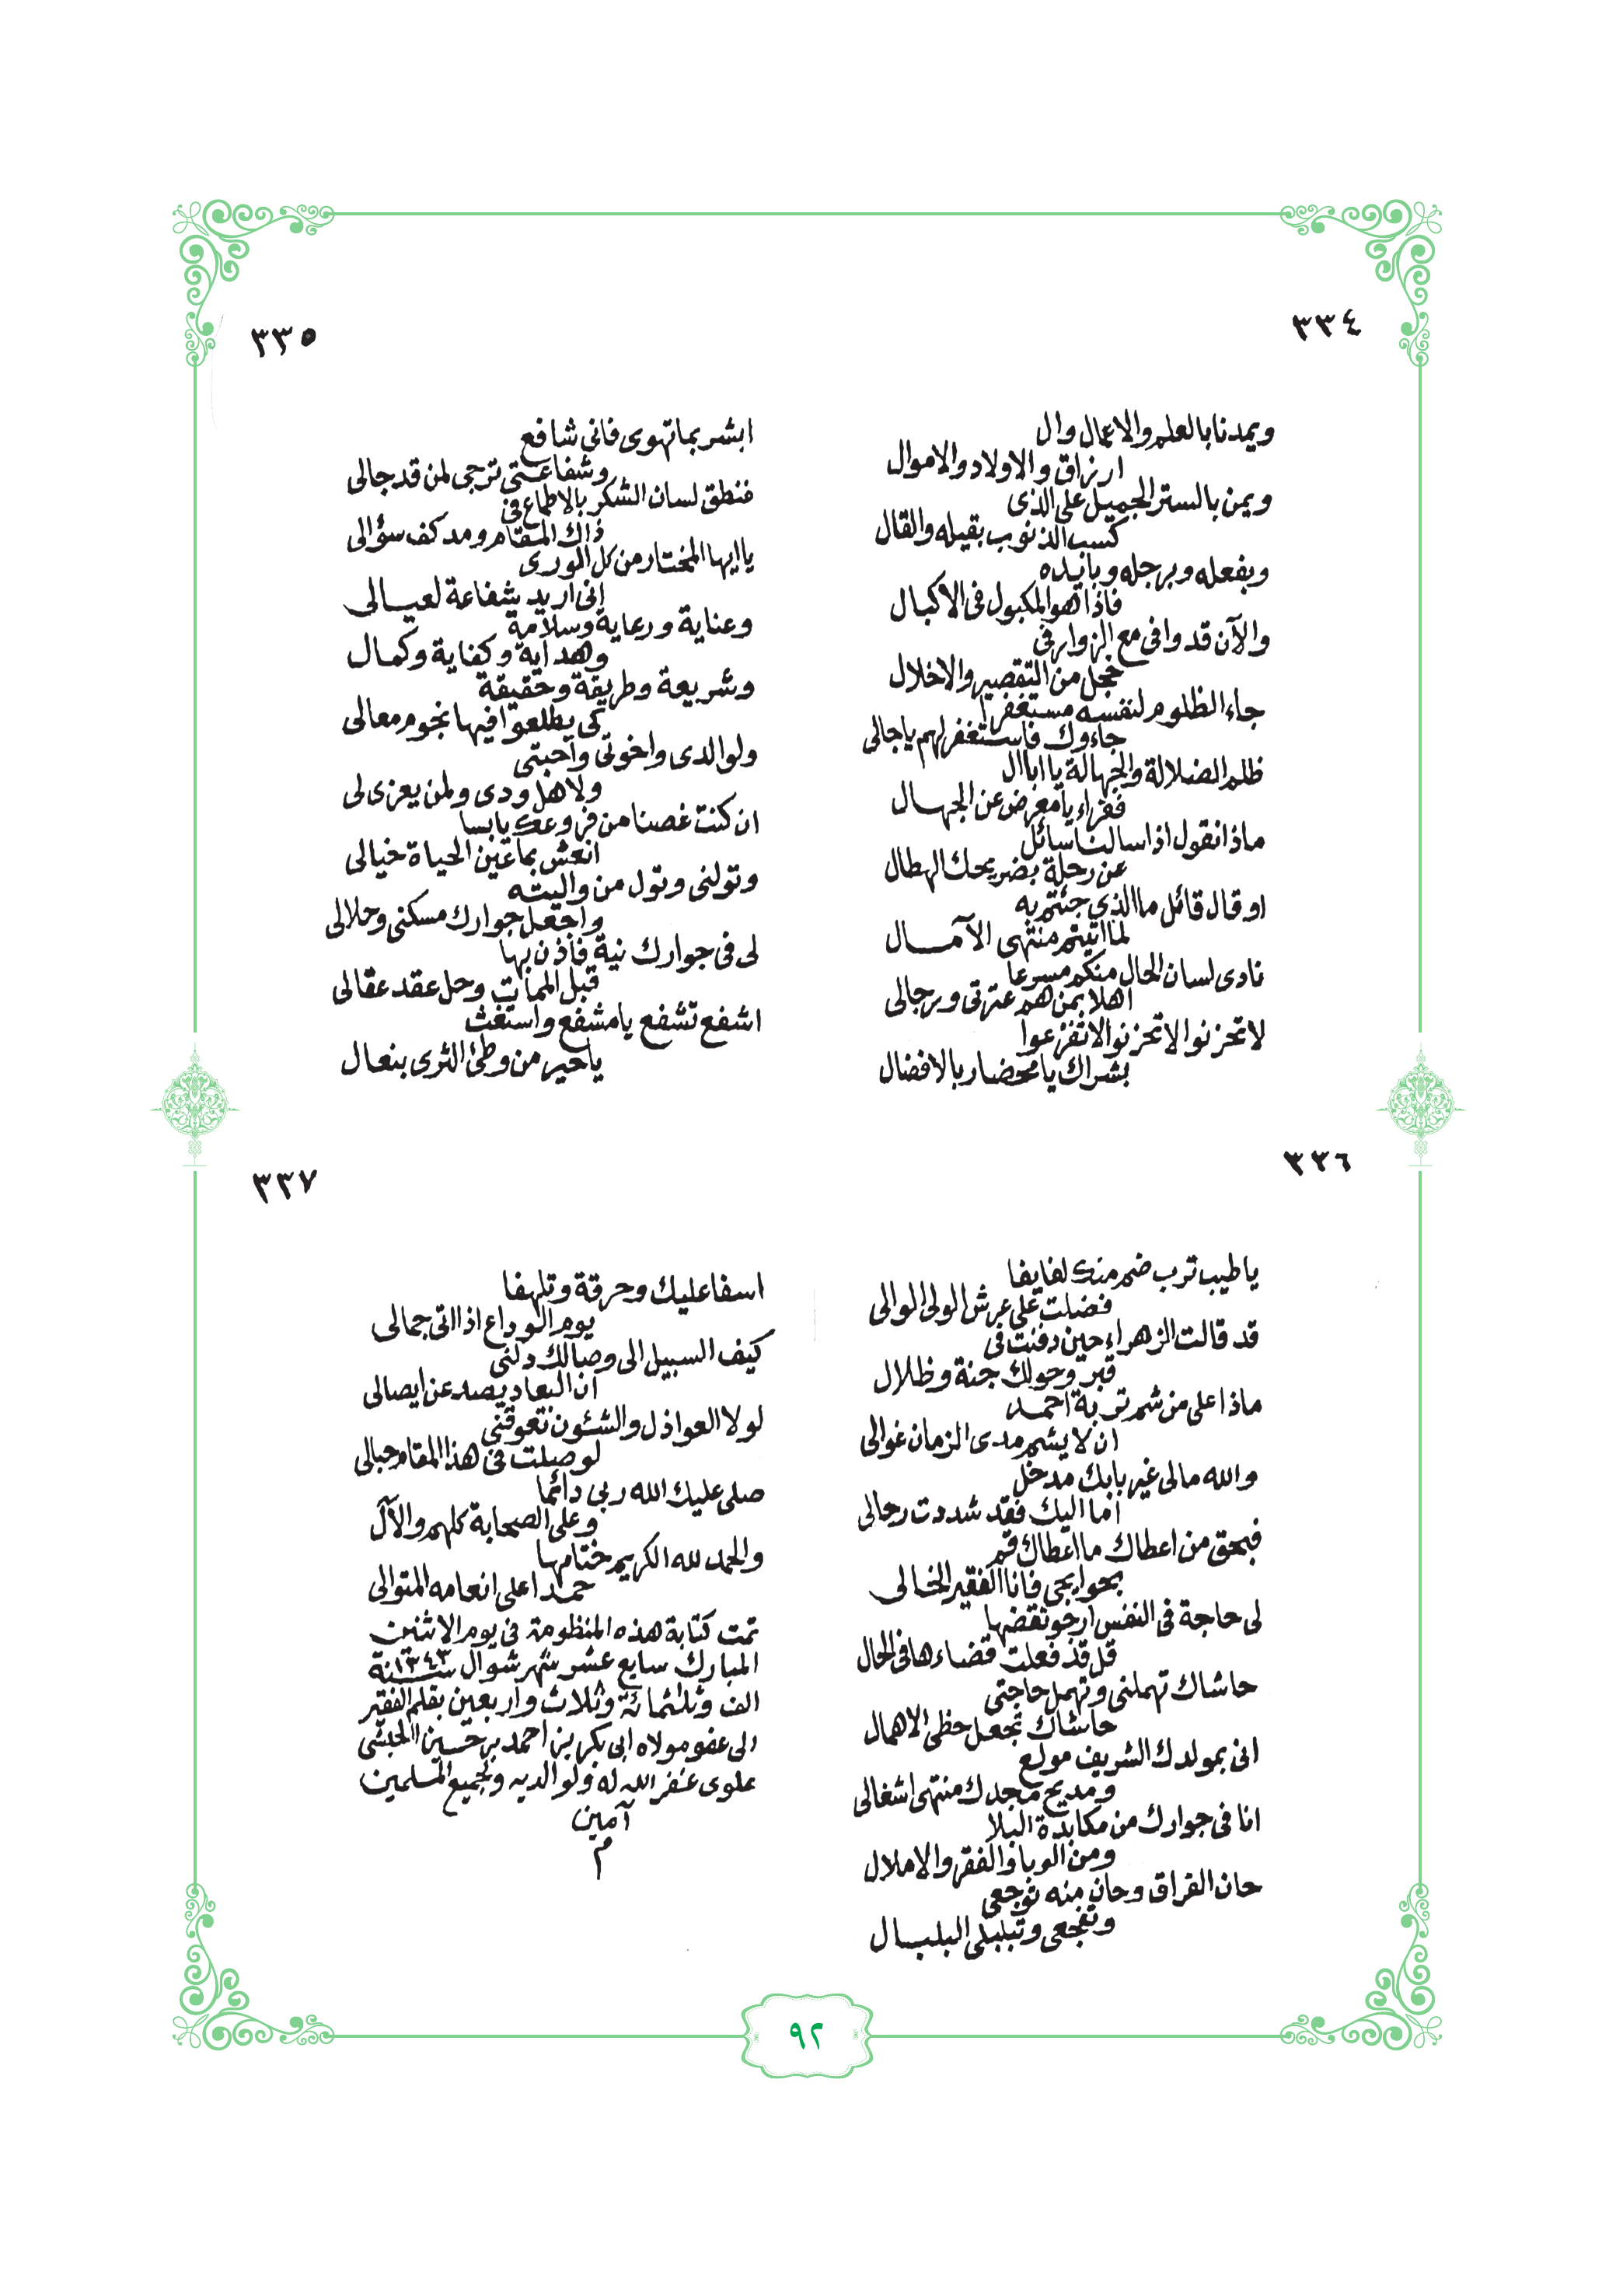 ٣٣٤
ويمدنا بالعلم والاعمال وال
ارزاق والاولاد والاموال
ويمن بالستر الجميل على الذى
كسب الذنوب بقيله والقال
وبفعله وبرجله وبايده
فاذا هو المكبول فى الاكبال
والآن قد وافى مع الزوار فى
خجل من التقصير والاخلال
جاء الظلوم لنفسه مستغفرا
جاءوك فاستغفر لهم ياجالى
ظلم الضلالة والجهالة يا اباال
فقراء يا معرض عن الجهال
ماذا نقول اذا سالنا سائل
عن رحلة بضريحك الهطال
او قال قائل ما الذى جئتم به
لما اتيتم منتهى الآمال
نادى لسان الحال منكم مسرعا
اهلا بمن هم عترتى ورجالى
لا تحزنوا لا تحزنوا لا تفزعوا
بشراك يا محضار بالافضال
٣٣٥
ابشر بما تهوى فانى شافع
وشفاعتى ترجى لمن قد جالى
فنطق لسان الشكر بالاطماع فى
ذاك المقام ومد كف سؤالى
يا ايها المختار من كل الورى
انى اريد شفاعة لعيالى
وعناية ورعاية وسلامة
وهداية وكفاية وكمال
وشريعة وطريقة وحقيقة
كى يطلعوا فيها نجوم معالى
ولوالدى واخوتى واحبتى
ولاهل ودى ولمن يعزى لى
ان كنت غصنا من فروعك يابسا
انعش بماعين الحياة خيالى
وتولنى وتول من واليته
واجعل جوارك مسكنى وحلالى
لى فى جوارك نية فاذن بها
قبل الممات وحل عقد عقالى
اشفع تشفع يا مشفع واستغث
ياخير من وطئ الثرى بنعال
٣٣٦
يا طيب ترب ضم منك لفايفا
فضلت على عرش الولى الوالى
قد قالت الزهراء حين دفنت فى
قبر وحولك جنة وظلال
ماذا على من شم تربة احمد
ان لا يشم مدى الزمان غوالى
والله مالى غير بابك مدخل
اما اليك فقد شددت رحالى
فبحق من اعطاك ما اعطاك قم
بحوايجى فانا الفقير الخالى
لى حاجة فى النفس ارجو تقضها
قل قد فعلت قضاءها فى الحال
حاشاك تهملنى وتهمل حاجتى
حاشاك تجعل حظى الاهمال
انى بمولدك الشريف مولع
ومديح مجدك منتهى اشغالى
انا فى جوارك من مكابدة البلا
ومن الوبا والفقر والاملال
حان الفراق وحان منه توجعى
وتفجعى وتبلبلى البلبال
٣٣٧
اسفا عليك وحرقة وتلهفا
يوم الوداع اذا اتى جمالى
كيف السبيل الى وصالك دلنى
ان البعاد يصد عن ايصالى
لولا العواذل والشئون تعوقنى
لوصلت فى هذا المقام حبالى
صلى عليك الله ربى دائما
وعلى الصحابة كلهم والآل
والحمد لله الكريم ختامها
حمدا على انعامه المتوالى
تمت كتابة هذه المنظومة فى يوم الاثنين
المبارك سابع عشر شهر شوال سنة ١٣٤٣
الف وثلثمائة وثلاث واربعين بقلم الفقير
الى عفو مولاه ابى بكر بن احمد بن حسين الحبشى
علوى غفر الله له ولوالديه ولجميع المسلمين
آمين
م
٩٢